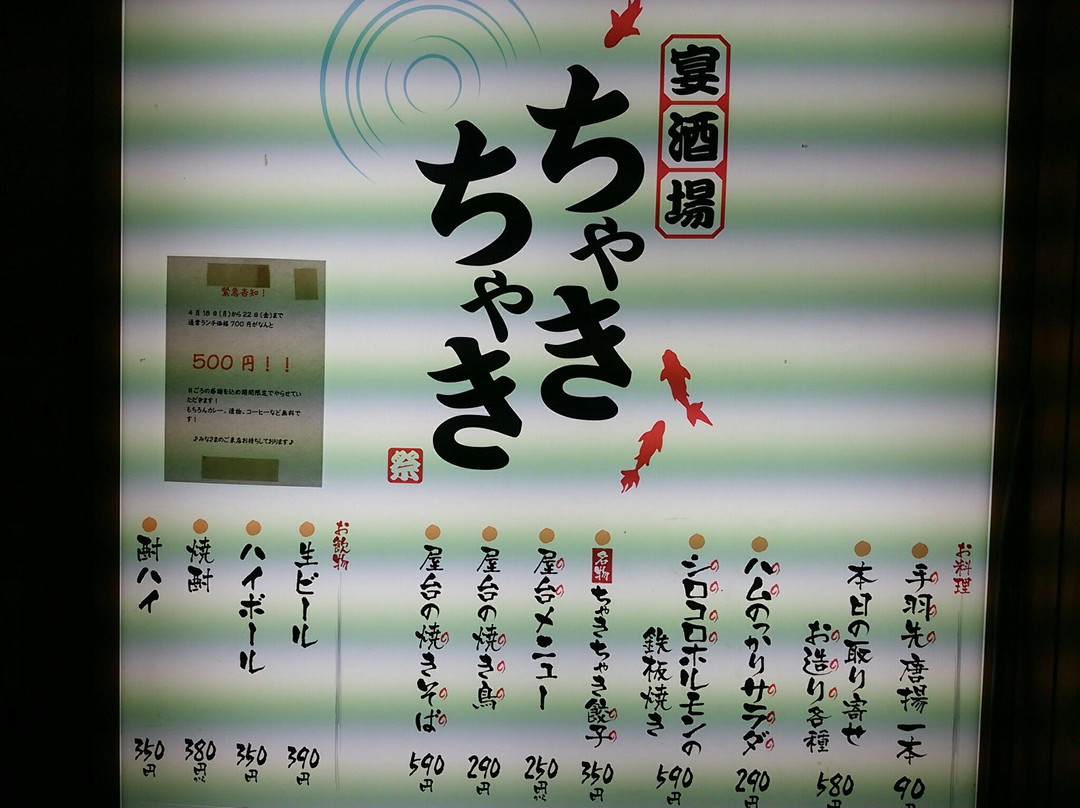 宴酒場
ちゃき
ちゃき
祭
緊急告知！
4月18日(月)から22日(金)まで
通常ランチ価格700円がなんと
500円！！
日ごろの感謝を込め期間限定でやらせてい
ただきます！
もちろんカレー、漬物、コーヒーなど無料で
す！
♪みなさまのご来店お待ちしております♪
お料理
手羽先唐揚一本
90円
本日の取り寄せ
お造り各種
580円
ハムのっかりサラダ
290円
シロコロホルモンの
鉄板焼き
590円
名物
ちゃきちゃき餃子
350円
屋台メニュー
250円〜
屋台の焼き鳥
290円
屋台の焼きそば
590円
お飲物
生ビール
390円
ハイボール
350円
焼酎
380円〜
酎ハイ
350円